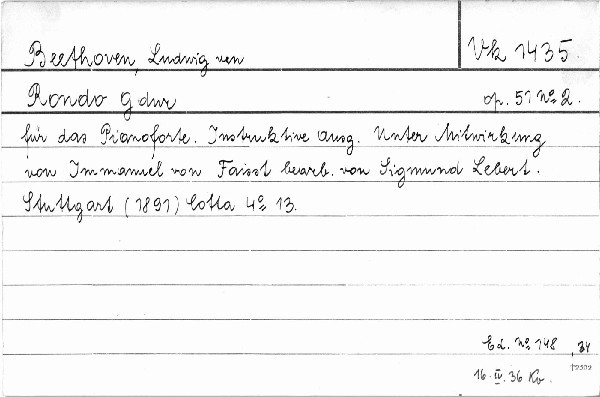 Beethoven, Ludwig van
Vk 1435.
Rondo G dur op. 51 No 2.
für das Pianoforte. Instruktive Ausg. Unter Mitwirkung
von Immanuel von Faisst bearb. von Sigmund Lebert.
Stuttgart (1891) Cotta 4o 13.
Ed. No 148
16. IV. 36 Kv.